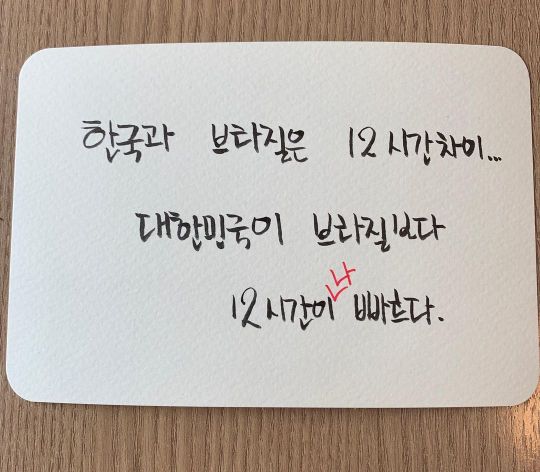 한국과 브라질은 12시간차이...
대한민국이 브라질보다
12시간이나 빠르다.